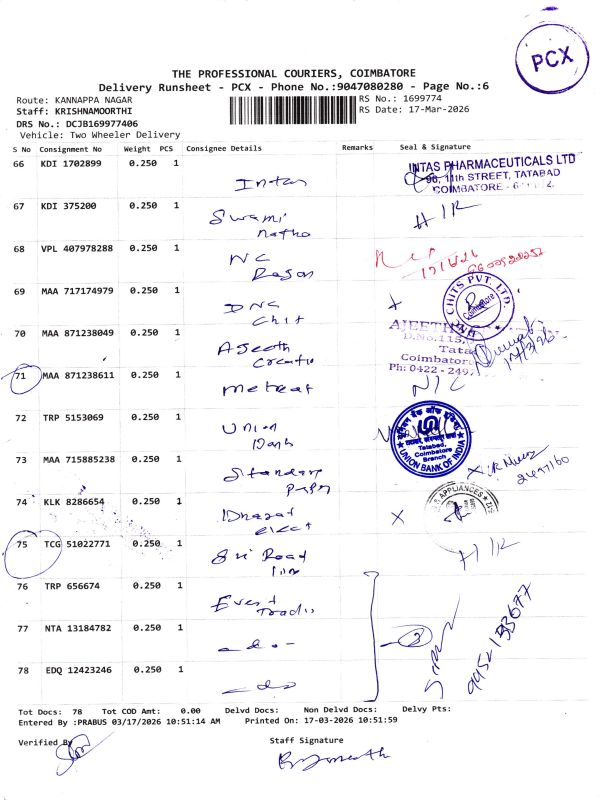 PCX
THE PROFESSIONAL COURIERS, COIMBATORE
Delivery Runsheet - PCX - Phone No.:9047080280 - Page No.:6
Route: KANNAPPA NAGAR
RS No.: 1699774
Staff: KRISHNAMOORTHI
RS Date: 17-Mar-2026
DRS No.: DCJB169977406
Vehicle: Two Wheeler Delivery
S No Consignment No Weight PCS Consignee Details Remarks Seal & Signature
66 KDI 1702899 0.250 1
Intas
INTAS PHARMACEUTICALS LTD
11th STREET, TATABAD
COIMBATORE
67 KDI 375200 0.250 1
Swami
H/R
68 VPL 407978288 0.250 1
NC
69 MAA 717174979 0.250 1
DNC
Chit
CHITS PVT. LTD.
Coimbatore
70 MAA 871238049 0.250 1
Ajeeth
Creatio
D.No.115,
Tata
Coimbator
Ph: 0422 - 249
71 MAA 871238611 0.250 1
N/C
72 TRP 5153069 0.250 1
Union
Bank
यूनियन बैंक ऑफ इंडिया
Tatabad,
Coimbatore
Branch
UNION BANK OF INDIA
73 MAA 715885238 0.250 1
Standard
paper
74 KLK 8286654 0.250 1
APPLIANCES
75 TCG 51022771 0.250 1
Sri Road
H/R
76 TRP 656674 0.250 1
Event
77 NTA 13184782 0.250 1
- do -
3
78 EDQ 12423246 0.250 1
- do
Tot Docs: 78 Tot COD Amt: 0.00 Delvd Docs: Non Delvd Docs: Delvy Pts:
Entered By :PRABUS 03/17/2026 10:51:14 AM Printed On: 17-03-2026 10:51:59
Verified By
Staff Signature